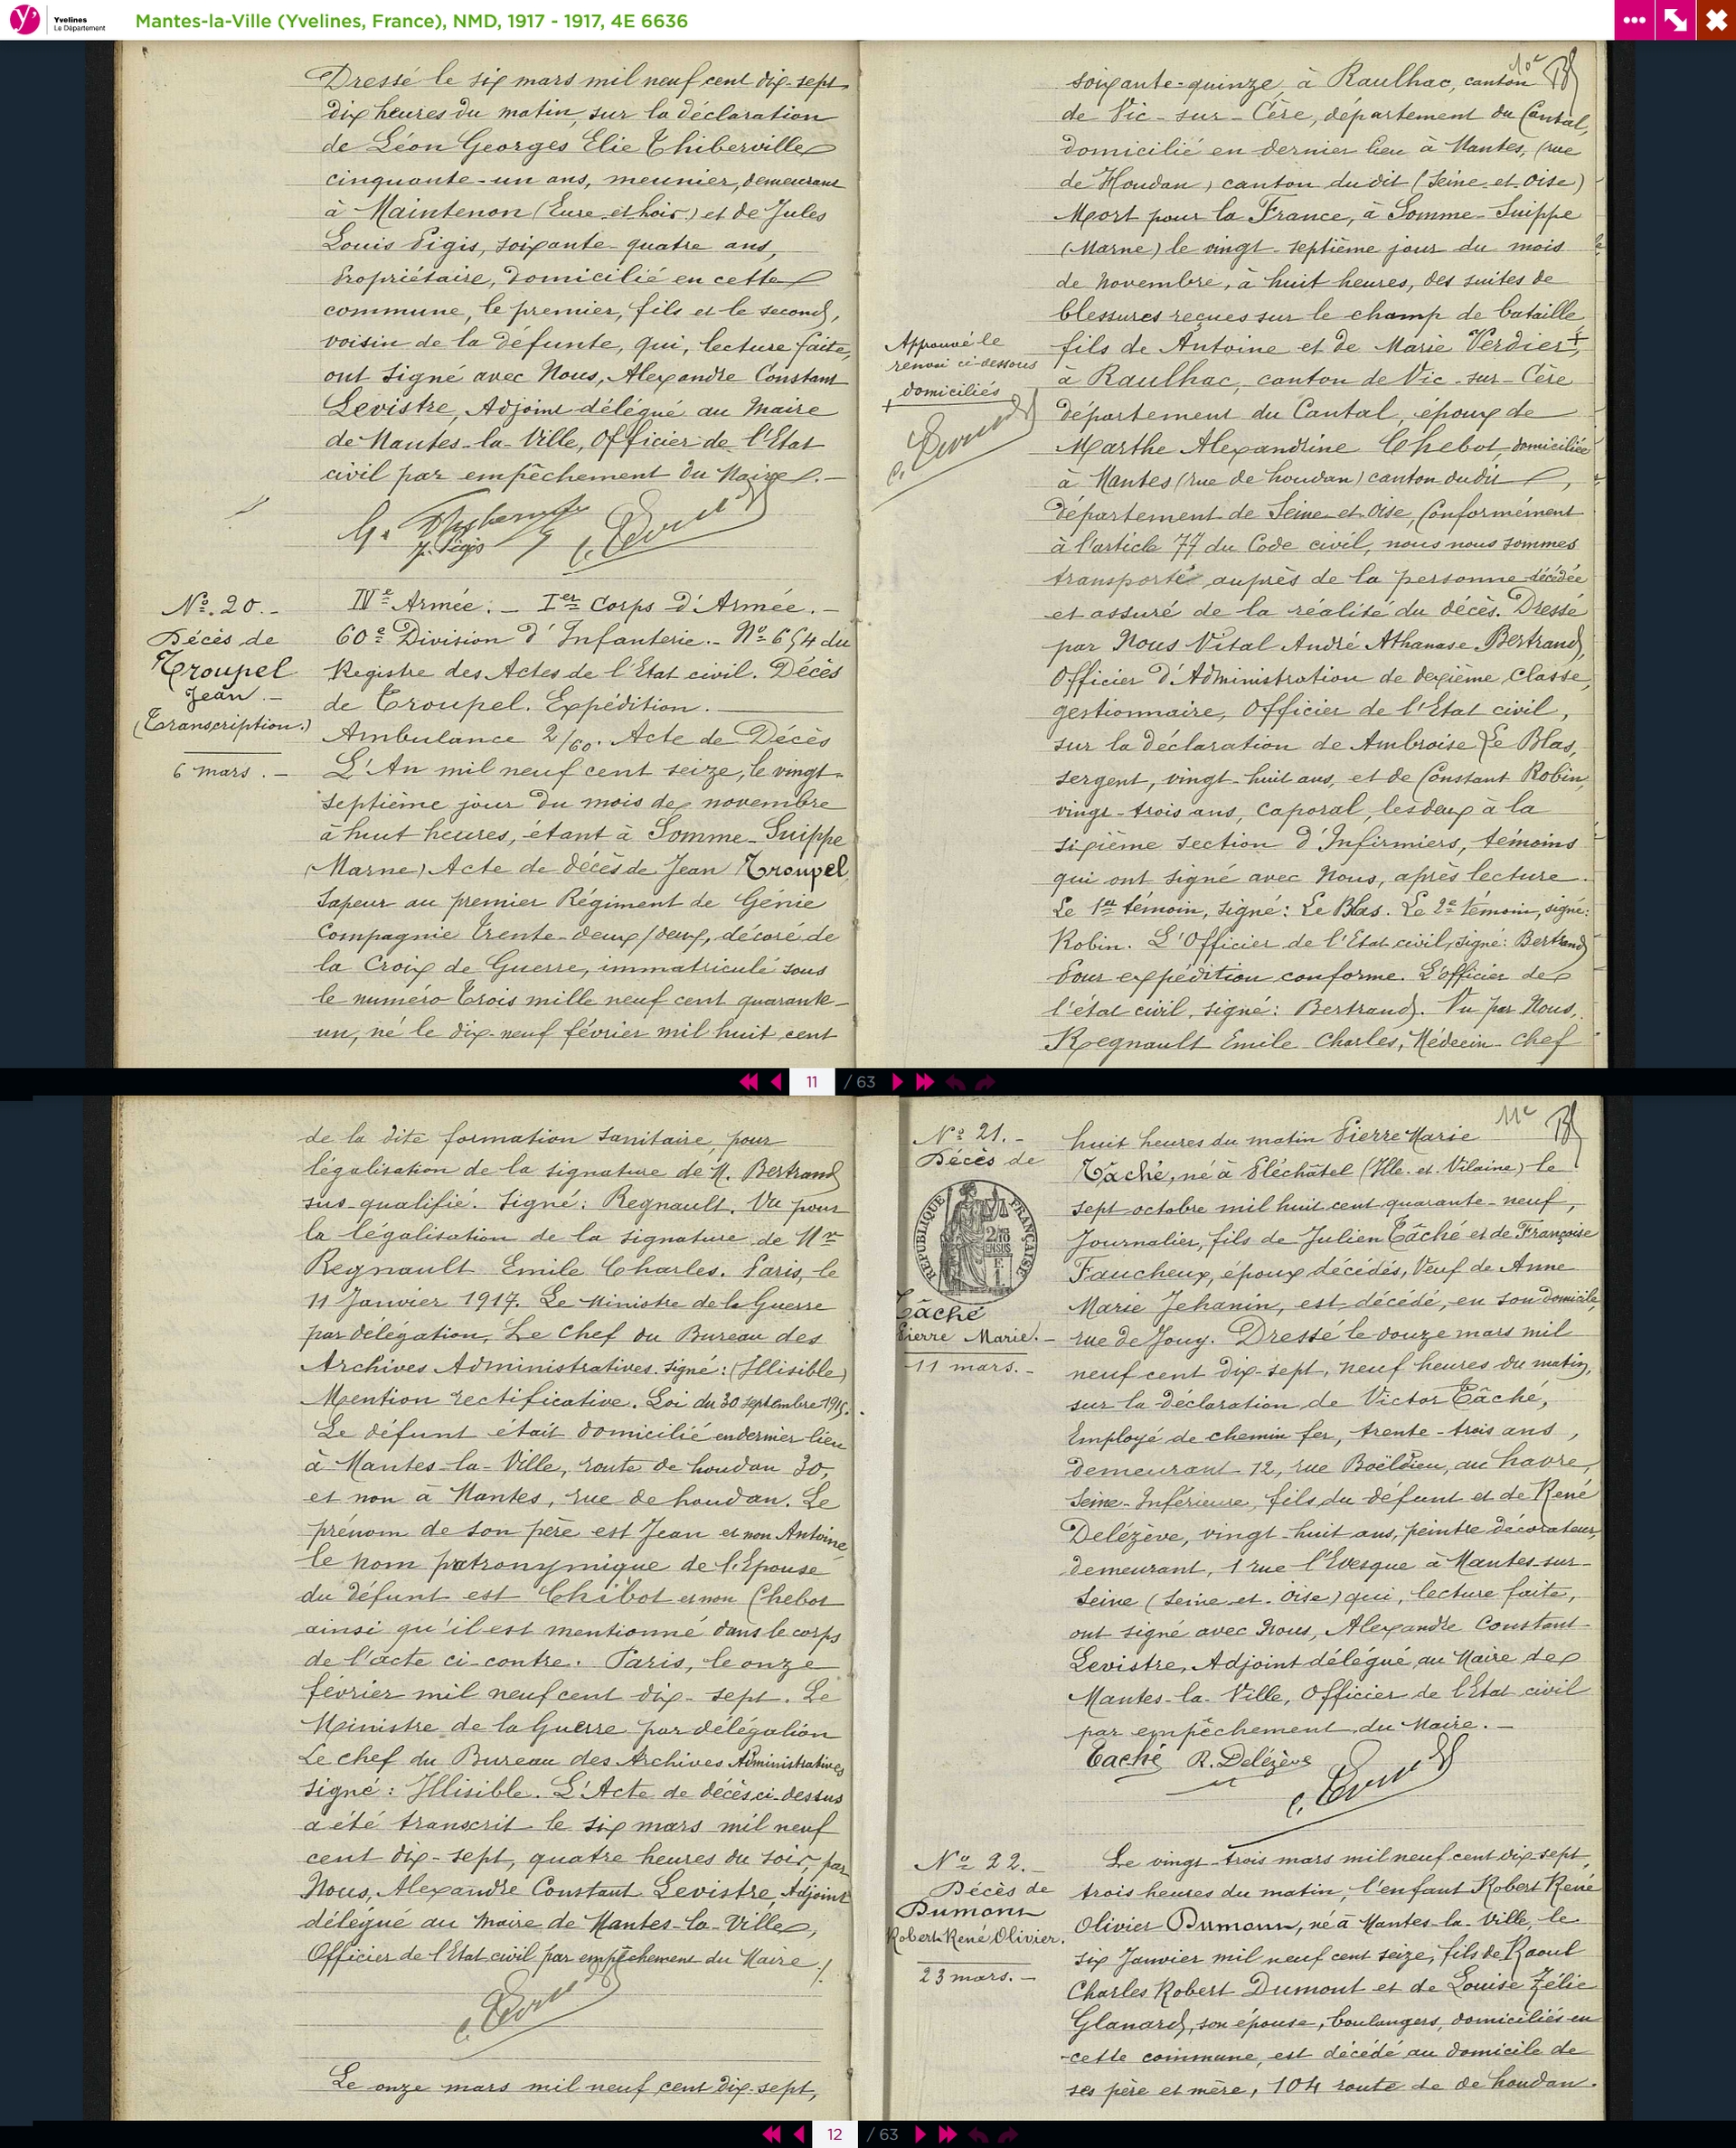 Yvelines
Le Département
Mantes-la-Ville (Yvelines, France), NMD, 1917 - 1917, 4E 6636
Dressé le six mars mil neuf cent dix-sept
dix heures du matin, sur la déclaration
de Léon Georges Elie Thiberville
cinquante-un ans, meunier, demeurant
à Maintenon (Eure et Loir) et de Jules
Louis Pigis, soixante-quatre ans,
propriétaire, domicilié en cette
commune, le premier, fils et le second,
voisin de la défunte, qui, lecture faite,
ont signé avec Nous, Alexandre Constant
Levistre, Adjoint délégué au Maire
de Mantes-la-Ville, Officier de l'Etat
civil par empêchement du Maire.-
G.
J. Pigis
No. 20.-
Décès de
Troupel
Jean.-
(Transcription.)
6 mars.-
IVe Armée.- Ier Corps d'Armée.-
60e Division d'Infanterie.- No 654 du
Registre des Actes de l'Etat civil. Décès
de Troupel. Expédition.
Ambulance 2/60. Acte de Décès
L'An mil neuf cent seize, le vingt-
septième jour du mois de novembre
à huit heures, étant à Somme-Suippe
(Marne) Acte de décès de Jean Troupel,
Sapeur au premier Régiment de Génie
Compagnie Trente-deux/deux, décoré de
la Croix de Guerre, immatriculé sous
le numéro Trois mille neuf cent quarante-
un, né le dix-neuf février mil huit cent
10e
soixante-quinze, à Raulhac, canton
de Vic-sur-Cère, département du Cantal,
domicilié en dernier lieu à Mantes, (rue
de Houdan) canton dudit (Seine et Oise)
Mort pour la France, à Somme-Suippe
(Marne) le vingt-septième jour du mois
de novembre, à huit heures, des suites de
blessures reçues sur le champ de bataille
fils de Antoine et de Marie Verdier +,
à Raulhac, canton de Vic-sur-Cère
département du Cantal, époux de
Marthe Alexandrine Chebot, domiciliée
à Mantes (rue de houdan) canton dudit,
département de Seine et Oise, Conformément
à l'article 77 du Code civil, nous nous sommes
transporté auprès de la personne décédée
et assuré de la réalité du décès. Dressé
par Nous Vital André Athanase Bertrand,
Officier d'Administration de dexième Classe,
gestionnaire, Officier de l'Etat civil,
sur la déclaration de Ambroise Le Blas,
sergent, vingt-huit ans, et de Constant Robin,
vingt-trois ans, caporal, les deux à la
sixième section d'Infirmiers, témoins
qui ont signé avec Nous, après lecture.
Le 1er témoin, signé: Le Blas. Le 2e témoin, signé:
Robin. L'Officier de l'Etat civil, signé: Bertrand
Pour expédition conforme. L'officier de
l'état civil, signé: Bertrand. Vu par Nous,
Regnault Emile Charles, Médecin-chef
Approuvé le
renvoi ci-dessous
+ domiciliés
11 / 63
de la dite formation sanitaire, pour
légalisation de la signature de M. Bertrand
sus qualifié. Signé: Regnault. Vu pour
la légalisation de la signature de Mr
Regnault Emile Charles. Paris, le
11 Janvier 1917. Le Ministre de la Guerre
par délégation, Le Chef du Bureau des
Archives Administratives. signé: (Illisible)
Mention rectificative. Loi du 30 septembre 1915.
Le défunt était domicilié en dernier lieu
à Mantes-la-Ville, route de houdan 30,
et non à Mantes, rue de houdan. Le
prénom de son père est Jean et non Antoine,
le nom patronymique de l'Epouse
du défunt est Chibot et non Chebot
ainsi qu'il est mentionné dans le corps
de l'acte ci-contre. Paris, le onze
février mil neuf cent dix-sept. Le
Ministre de la Guerre par délégation
Le chef du Bureau des Archives Administratives
signé: Illisible. L'Acte de décès ci-dessus
a été transcrit le six mars mil neuf
cent dix-sept, quatre heures du soir, par
Nous, Alexandre Constant Levistre, Adjoint
délégué au Maire de Mantes-la-Ville,
Officier de l'Etat civil par empêchement du Maire./.
Le onze mars mil neuf cent dix-sept,
11e
No 21.-
Décès de
REPUBLIQUE FRANÇAISE
Tâché
Pierre Marie.-
11 mars.-
huit heures du matin Pierre Marie
Tâché, né à Pléchâtel (Ille-et-Vilaine) le
sept octobre mil huit cent quarante-neuf,
Journalier, fils de Julien Tâché et de Françoise
Faucheux, époux décédés, Veuf de Anne
Marie Jehanin, est décédé, en son domicile,
rue de Jouy. Dressé le douze mars mil
neuf cent dix-sept, neuf heures du matin,
sur la déclaration de Victor Tâché,
Employé de chemin fer, trente-trois ans,
demeurant 12, rue Boëldieu, au havre,
Seine-Inférieure, fils du défunt et de René
Delézève, vingt-huit ans, peintre décorateur,
demeurant, 1 rue l'Evesque à Mantes-sur-
Seine (Seine et Oise) qui, lecture faite,
ont signé avec Nous, Alexandre Constant
Levistre, Adjoint délégué au Maire de
Mantes-la-Ville, Officier de l'Etat civil
par empêchement du Maire.-
Taché R. Delézève
No 22.-
Décès de
Dumont
Robert René Olivier.
23 mars.-
Le vingt-trois mars mil neuf cent dix-sept,
trois heures du matin, l'enfant Robert René
Olivier Dumont, né à Mantes-la-Ville, le
six Janvier mil neuf cent seize, fils de Raoul
Charles Robert Dumont et de Louise Zélie
Glanard, son épouse, boulangers, domiciliés en
cette commune, est décédé au domicile de
ses père et mère, 104 route de de houdan.
12 / 63